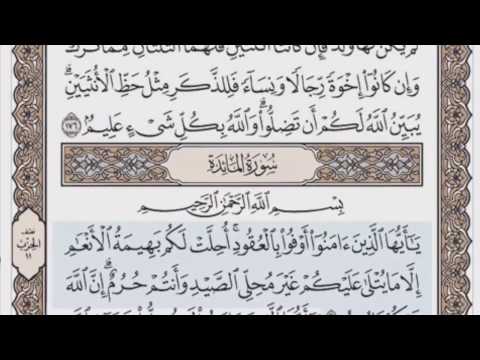 لَمْ يَكُن لَّهَا وَلَدٌ فَإِن كَانَتَا ٱثْنَتَيْنِ فَلَهُمَا ٱلثُّلُثَانِ مِمَّا تَرَكَ
وَإِن كَانُوٓا۟ إِخْوَةً رِّجَالًا وَنِسَآءً فَلِلذَّكَرِ مِثْلُ حَظِّ ٱلْأُنثَيَيْنِ ۗ
يُبَيِّنُ ٱللَّهُ لَكُمْ أَن تَضِلُّوا۟ ۗ وَٱللَّهُ بِكُلِّ شَىْءٍ عَلِيمٌۢ ١٧٦
سُورَةُ المَائِدَةِ
بِسْمِ ٱللَّهِ ٱلرَّحْمَٰنِ ٱلرَّحِيمِ
يَـٰٓأَيُّهَا ٱلَّذِينَ ءَامَنُوٓا۟ أَوْفُوا۟ بِٱلْعُقُودِ ۚ أُحِلَّتْ لَكُم بَهِيمَةُ ٱلْأَنْعَـٰمِ
إِلَّا مَا يُتْلَىٰ عَلَيْكُمْ غَيْرَ مُحِلِّى ٱلصَّيْدِ وَأَنتُمْ حُرُمٌ ۗ إِنَّ ٱللَّهَ
نصف
الحزب
١١